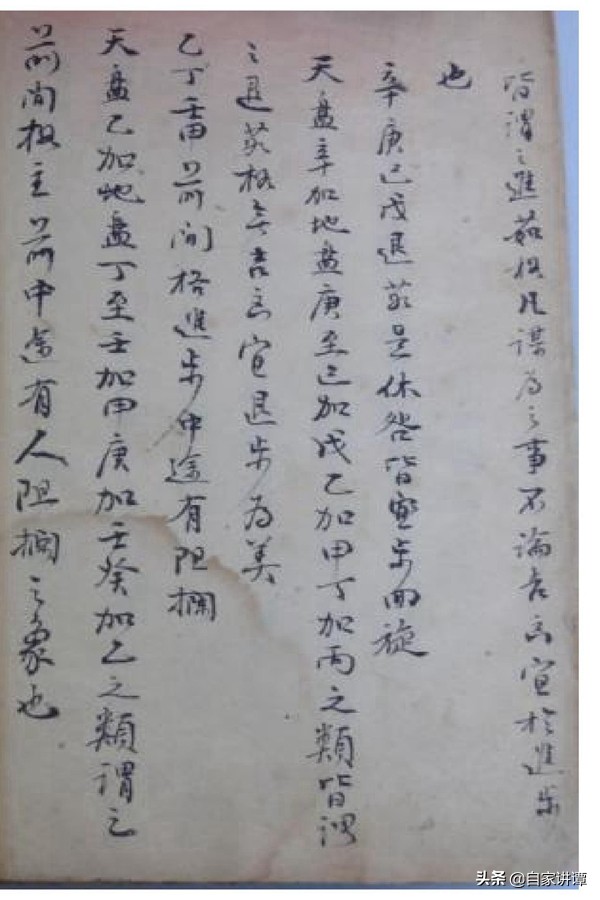 皆謂之進茹格凡謀為之事不論吉凶宜於進步
也
辛庚己戊退茹是休咎皆宜步回旋
天盘辛加地盘庚至己加戊乙加甲丁加丙之類皆謂
之退茹格吉凶宜退步為美
乙丁壬甲前间格進步中途有阻攔
天盘乙加地盘丁至壬加甲庚加壬癸加乙之類謂之
前间格主前中途有人阻攔之象也
头条 @自家讲谭